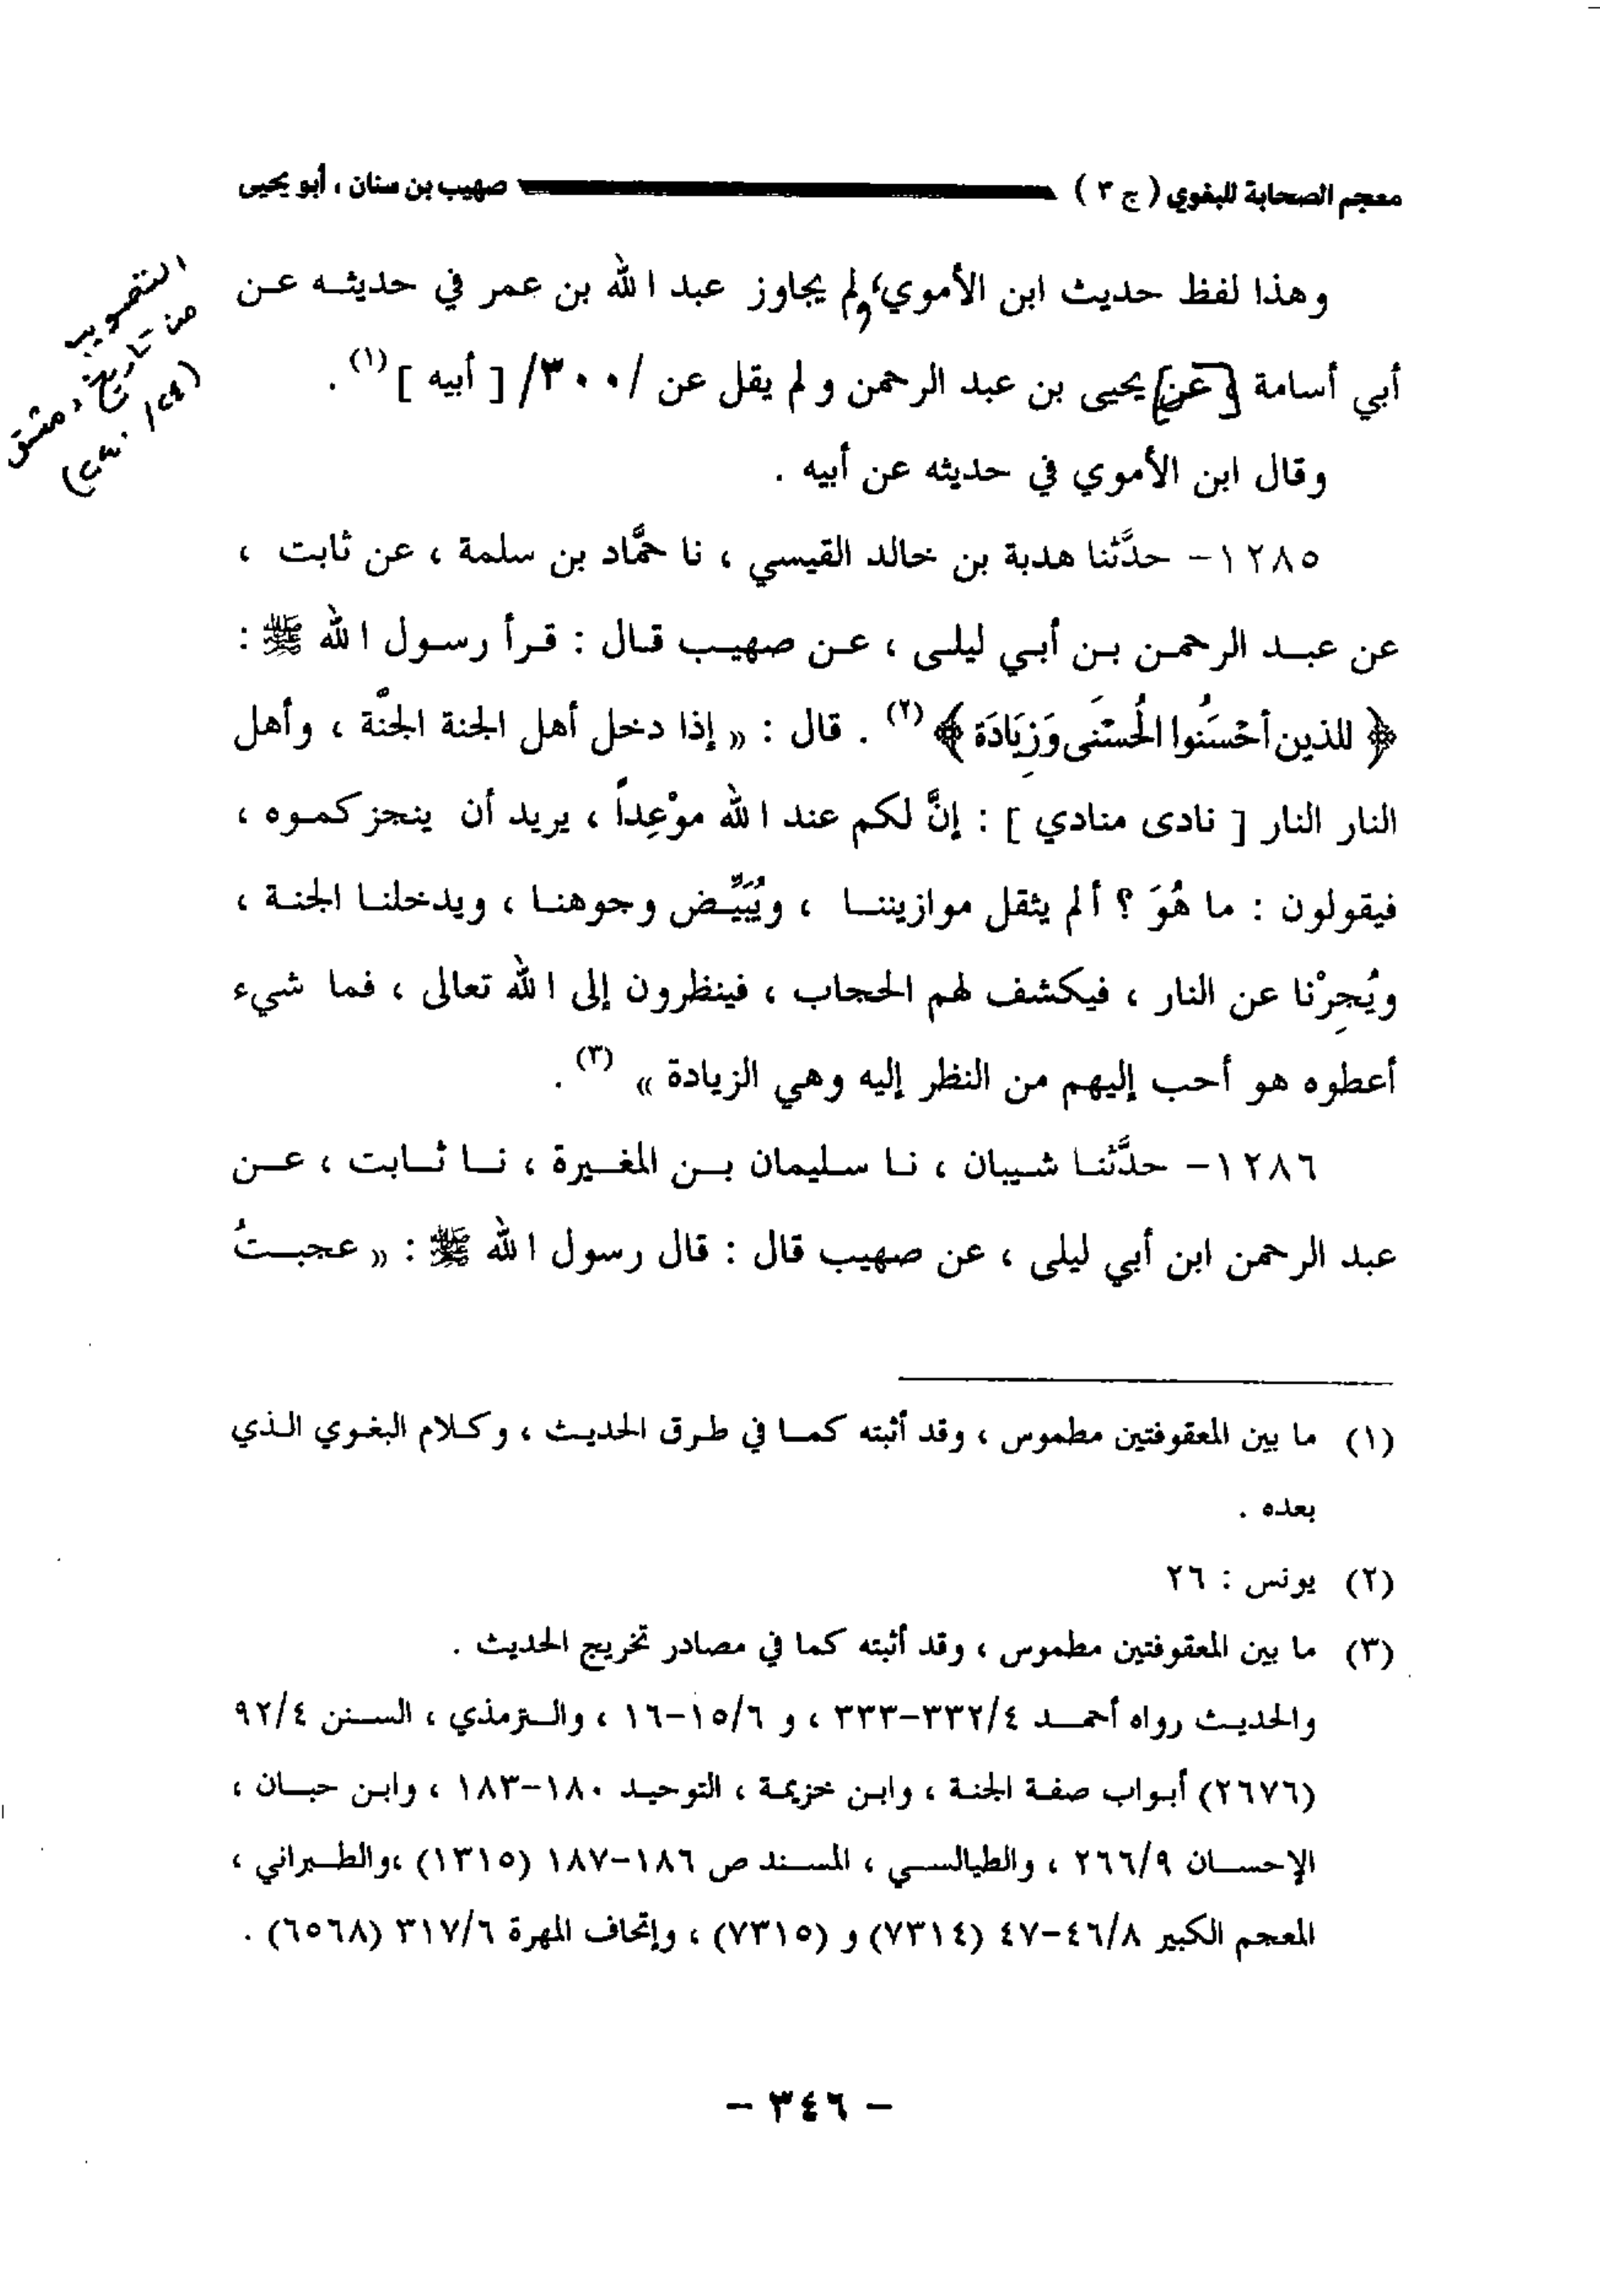 معجم الصحابة للبغوي ( ج ٣ ) صهيب بن سنان ، أبو يحيى
وهذا لفظ حديث ابن الأموي، ولم يجاوز عبد الله بن عمر في حديثه عن
أبي أسامة [عن] يحيى بن عبد الرحمن و لم يقل عن /٣٠٠/ [ أبيه ] (١) .
وقال ابن الأموي في حديثه عن أبيه .
التصويب
من تاريخ دمشق
١٢٨٥- حدَّثنا هدبة بن خالد القيسي ، نا حمَّاد بن سلمة ، عن ثابت ،
عن عبد الرحمن بن أبي ليلى ، عن صهيب قال : قرأ رسول الله ﷺ :
﴿ للذين أحْسَنُوا الحُسْنَى وَزِيَادَة ﴾ (٢) . قال : « إذا دخل أهل الجنة الجنّة ، وأهل
النار النار [ نادى منادي ] : إنَّ لكم عند الله موْعِداً ، يريد أن ينجزكموه ،
فيقولون : ما هُوَ ؟ ألم يثقل موازيننا ، ويُبَيِّض وجوهنا ، ويدخلنا الجنة ،
ويُجِرْنا عن النار ، فيكشف لهم الحجاب ، فينظرون إلى الله تعالى ، فما شيء
أعطوه هو أحب إليهم من النظر إليه وهي الزيادة » (٣) .
١٢٨٦- حدَّثنا شيبان ، نا سليمان بن المغيرة ، نا ثابت ، عن
عبد الرحمن ابن أبي ليلى ، عن صهيب قال : قال رسول الله ﷺ : « عجبتُ
(١) ما بين المعقوفتين مطموس ، وقد أثبته كما في طرق الحديث ، وكلام البغوي الذي
بعده .
(٢) يونس : ٢٦
(٣) ما بين المعقوفتين مطموس ، وقد أثبته كما في مصادر تخريج الحديث .
والحديث رواه أحمد ٣٣٢/٤-٣٣٣ ، و ١٥/٦-١٦ ، والترمذي ، السنن ٩٢/٤
(٢٦٧٦) أبواب صفة الجنة ، وابن خزيمة ، التوحيد ١٨٠-١٨٣ ، وابن حبان ،
الإحسان ٢٦٦/٩ ، والطيالسي ، المسند ص ١٨٦-١٨٧ (١٣١٥) ،والطبراني ،
المعجم الكبير ٤٦/٨-٤٧ (٧٣١٤) و (٧٣١٥) ، وإتحاف المهرة ٣١٧/٦ (٦٥٦٨) .
- ٣٤٦ -